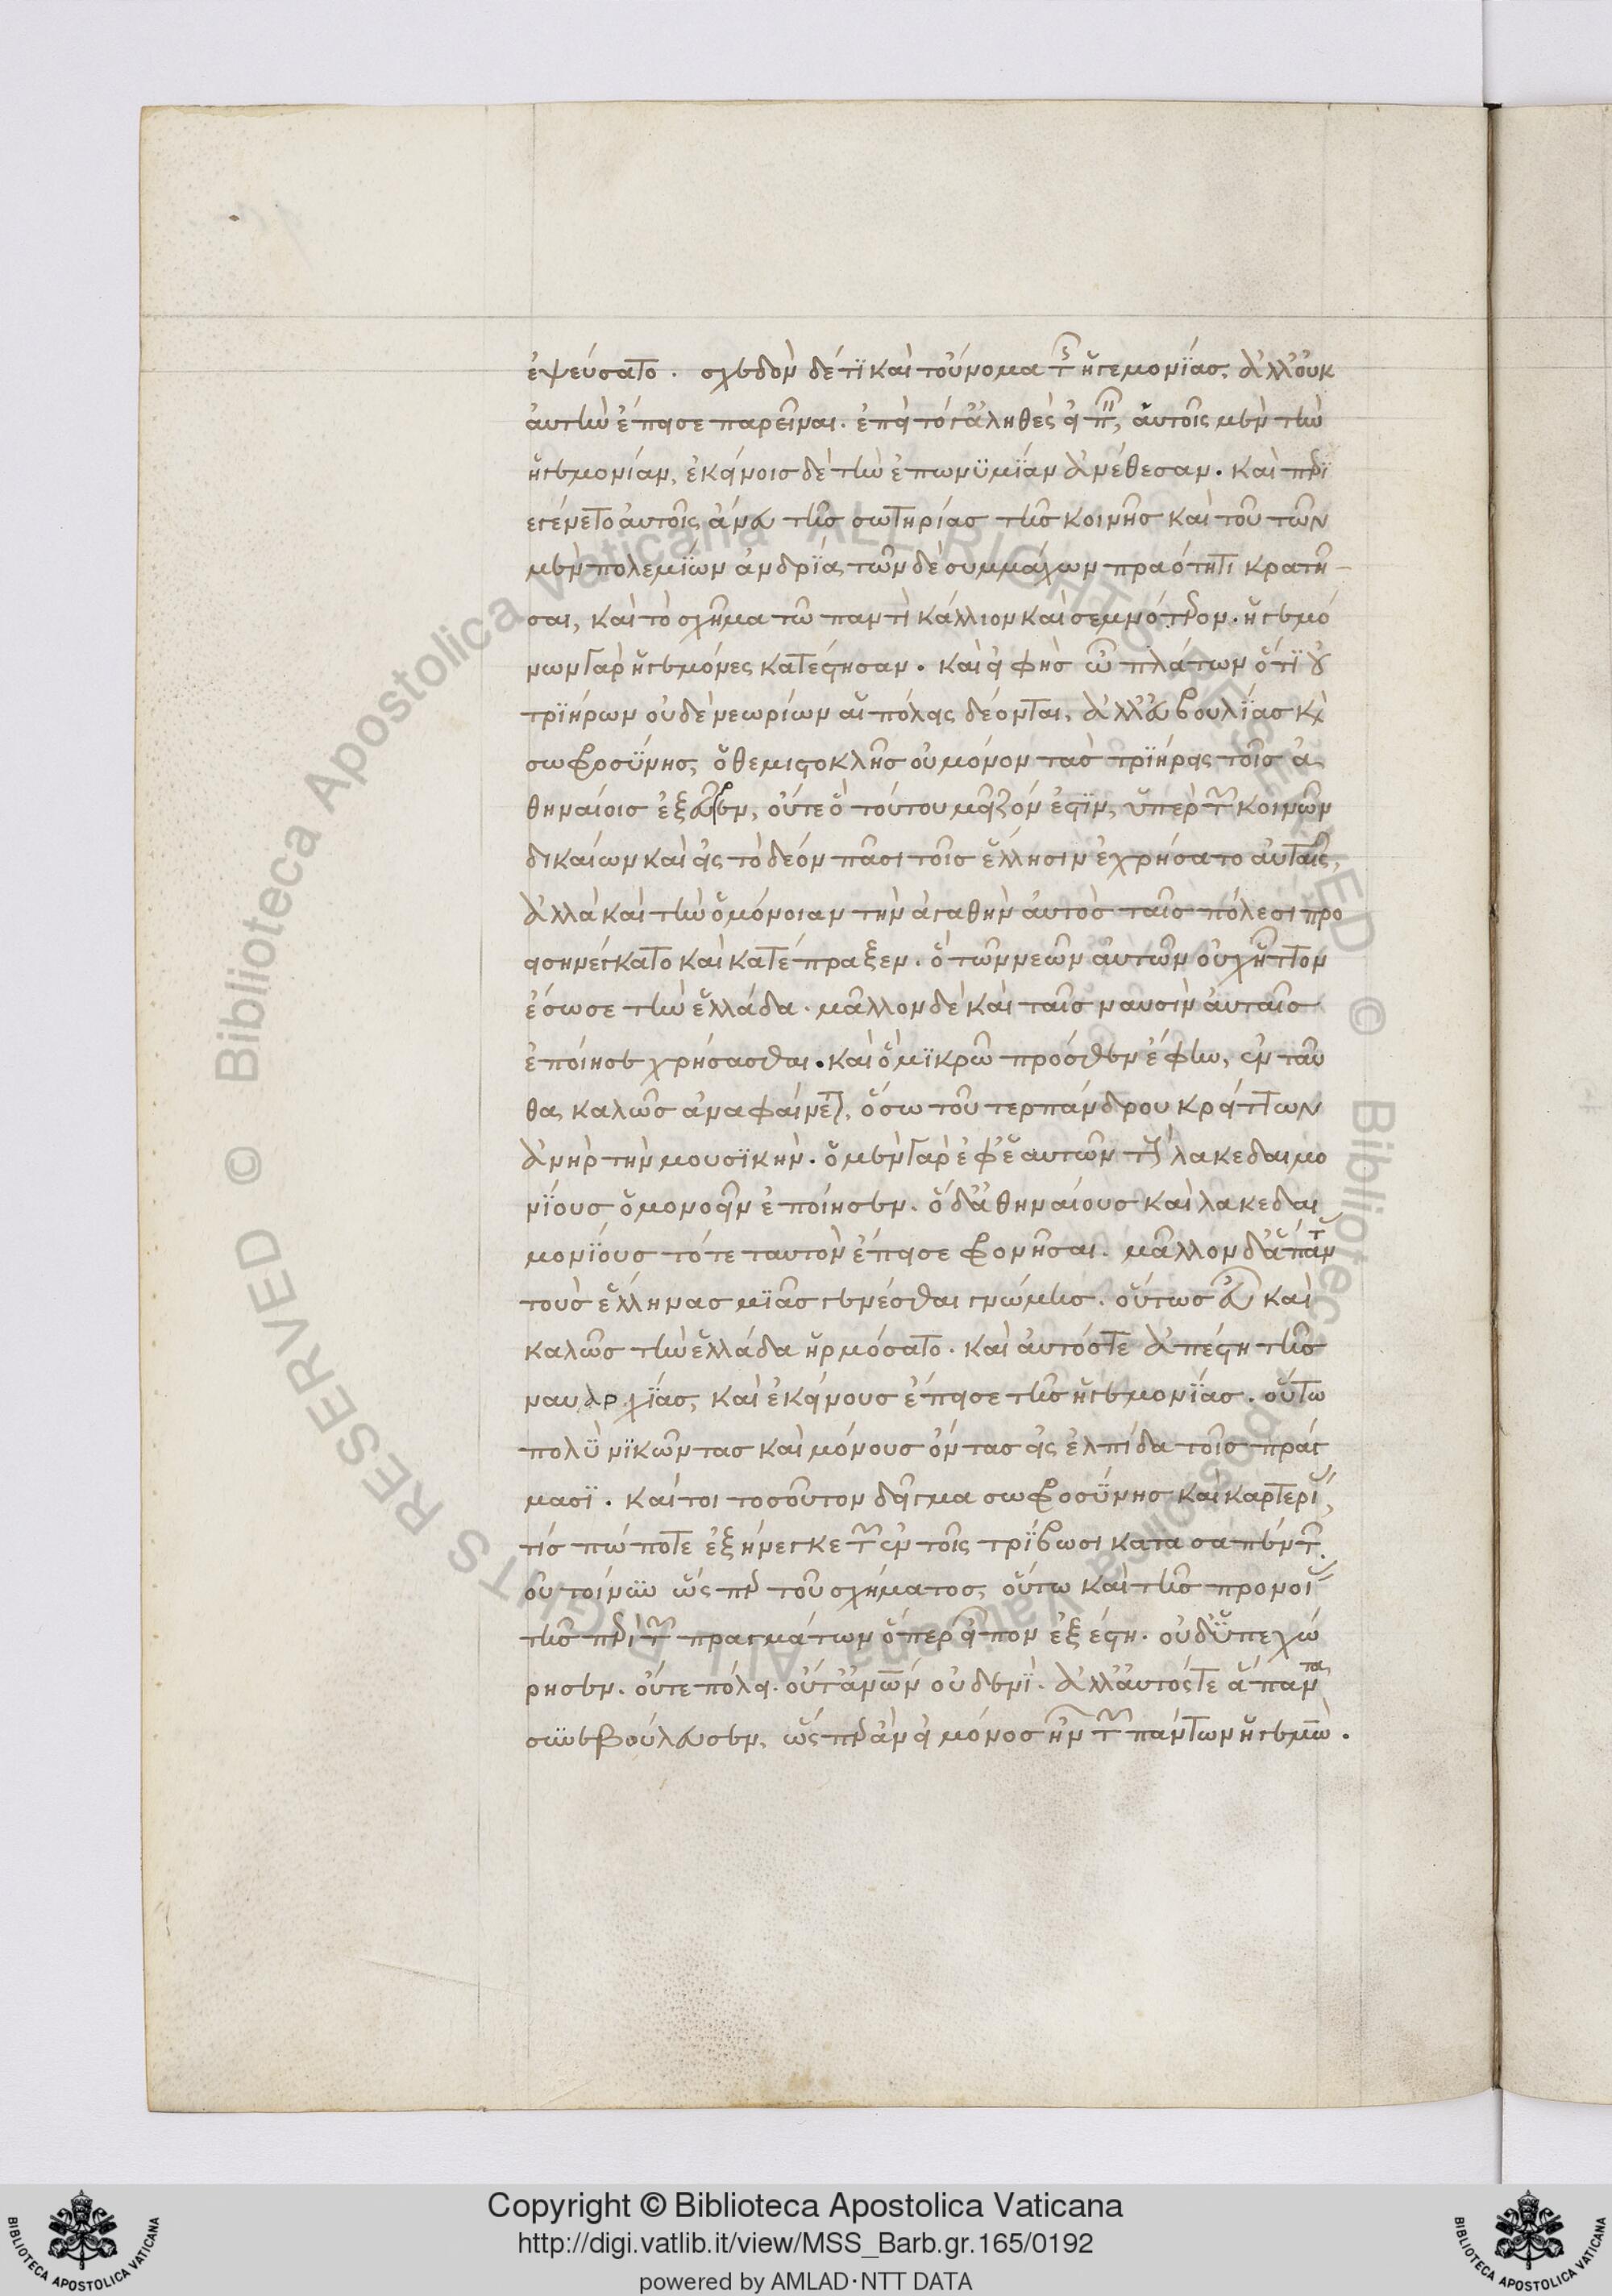 ἐψεύσατο. σχεδὸν δέ τι καὶ τοὔνομα τῆς ἡγεμονίας, ἀλλ' οὐκ
αὐτὴν ἔπεισε παρεῖναι. ἐπεὶ τό γ' ἀληθὲς εἰπεῖν, αὐτοῖς μὲν τὴν
ἡγεμονίαν, ἐκείνοις δὲ τὴν ἐπωνυμίαν ἀνέθεσαν. καὶ περι
εγένετο αὐτοῖς ἅμα τῆς σωτηρίας τῆς κοινῆς καὶ τοῦ τῶν
μὲν πολεμίων ἀνδρίᾳ, τῶν δὲ συμμάχων πραότητι κρατῆ-
σαι, καὶ τὸ σχῆμα τῷ παντὶ κάλλιον καὶ σεμνότερον. ἡγεμό
νων γὰρ ἡγεμόνες κατέστησαν. καὶ εἰ φησ ὦ πλάτων ὅτι οὐ
τριήρων οὐδὲ νεωρίων αἱ πόλεις δέονται, ἀλλ' εὐβουλίας καὶ
σωφροσύνης, ὁ θεμιστοκλῆς οὐ μόνον τὰς τριήρεις τοῖς ἀ
θηναίοις ἐξεῦρεν, οὔτε ὃ τούτου μεῖζόν ἐστιν, ὑπὲρ τῶν κοινῶν
δικαίων καὶ εἰς τὸ δέον πᾶσι τοῖς ἕλλησιν ἐχρήσατο αὐταῖς,
ἀλλὰ καὶ τὴν ὁμόνοιαν τὴν ἀγαθὴν αὐτὸς ταῖς πόλεσι προ
εισηνέγκατο καὶ κατέπραξεν. ὃ τῶν νεῶν αὐτῶν οὐχ ἧττον
ἔσωσε τὴν ἑλλάδα. μᾶλλον δὲ καὶ ταῖς ναυσὶν αὐταῖς
ἐποίησε χρήσασθαι. καὶ ὃ μικρῷ πρόσθεν ἔφην, ἐνταῦ
θα καλῶς ἀναφαίνεται, ὅσω τοῦ τερπάνδρου κρείττων
ἀνὴρ τὴν μουσικήν. ὁ μὲν γὰρ ἐφ' ἑαυτῶν τοὺς λακεδαιμο
νίους ὁμονοεῖν ἐποίησεν. ὁ δ' ἀθηναίους καὶ λακεδαι
μονίους τότε ταυτὸν ἔπεισε φρονῆσαι. μᾶλλον δ' ἅπαντας
τοὺς ἕλληνας μιᾶς γενέσθαι γνώμης. οὕτως εὖ καὶ
καλῶς τὴν ἑλλάδα ἡρμόσατο. καὶ αὐτός τε ἀπέστη τῆς
ναυαρχίας, καὶ ἐκείνους ἔπεισε τῆς ἡγεμονίας. οὕτω
πολὺ νικῶντας καὶ μόνους ὄντας εἰς ἐλπίδα τοῖς πράγ
μασι. καίτοι τοσοῦτον δεῖγμα σωφροσύνης καὶ καρτερίας,
τίς πώποτε ἐξήνεγκε τῶν ἐν τοῖς τρίβωσι κατασαπέντων.
οὐ τοίνυν ὥσπερ τοῦ σχήματος, οὕτω καὶ τῆς προνοίας
τῆς περὶ τῶν πραγμάτων ὅπερ εἶπον ἐξέστη. οὐδ' ὑπεχώ
ρησεν. οὔτε πόλει. οὔτ' ἀνθρώπων οὐδενί. ἀλλ' αὐτός τε ἅπαντα
συνεβούλευσεν, ὥσπερ ἂν εἰ μόνος ἦν τῶν πάντων ἡγεμών.
Copyright © Biblioteca Apostolica Vaticana
http://digi.vatlib.it/view/MSS_Barb.gr.165/0192
powered by AMLAD·NTT DATA